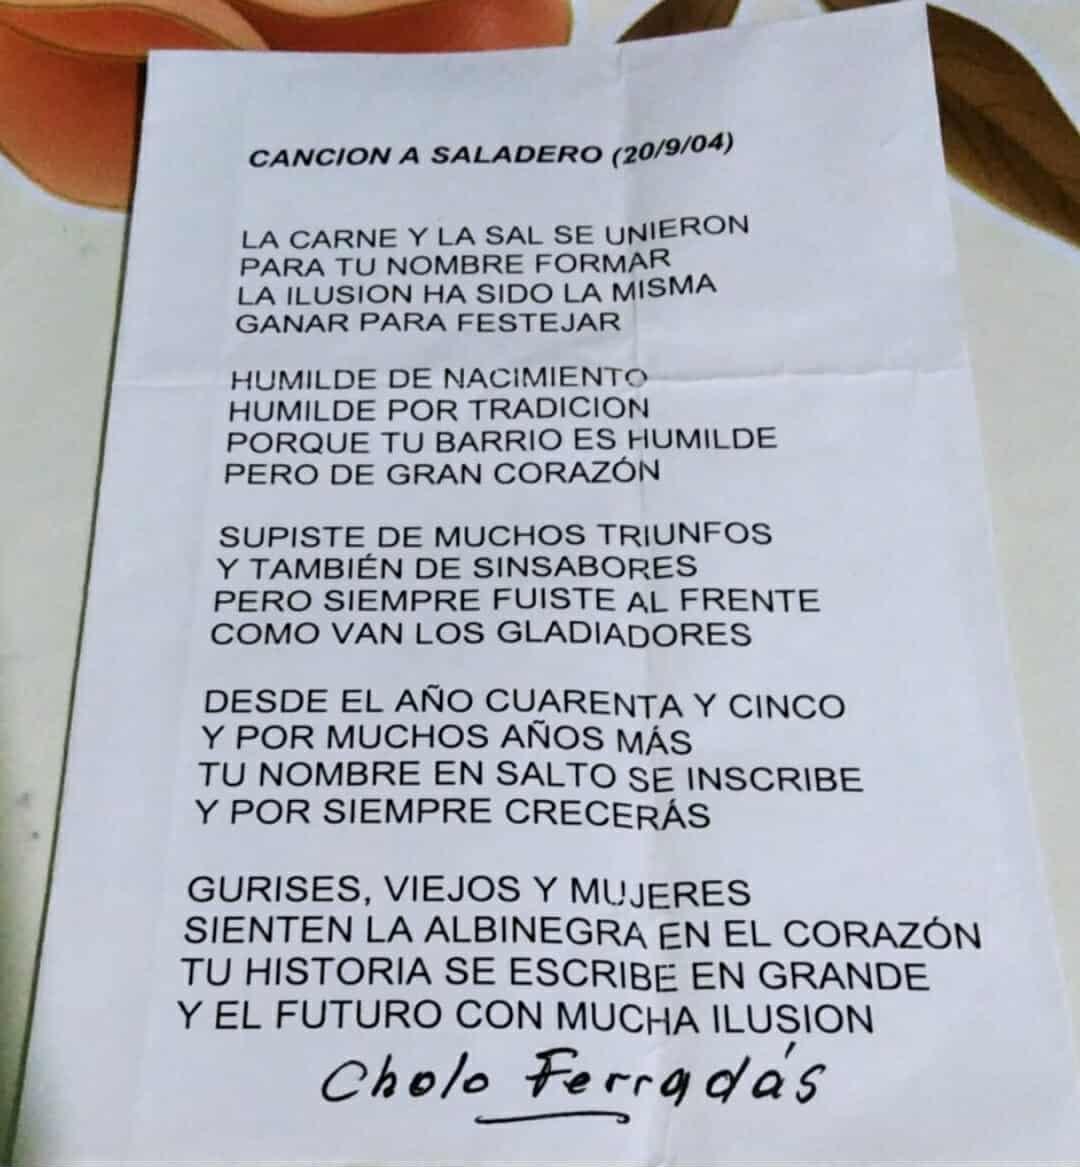 CANCION A SALADERO (20/9/04)
LA CARNE Y LA SAL SE UNIERON
PARA TU NOMBRE FORMAR
LA ILUSION HA SIDO LA MISMA
GANAR PARA FESTEJAR
HUMILDE DE NACIMIENTO
HUMILDE POR TRADICION
PORQUE TU BARRIO ES HUMILDE
PERO DE GRAN CORAZÓN
SUPISTE DE MUCHOS TRIUNFOS
Y TAMBIÉN DE SINSABORES
PERO SIEMPRE FUISTE AL FRENTE
COMO VAN LOS GLADIADORES
DESDE EL AÑO CUARENTA Y CINCO
Y POR MUCHOS AÑOS MÁS
TU NOMBRE EN SALTO SE INSCRIBE
Y POR SIEMPRE CRECERÁS
GURISES, VIEJOS Y MUJERES
SIENTEN LA ALBINEGRA EN EL CORAZÓN
TU HISTORIA SE ESCRIBE EN GRANDE
Y EL FUTURO CON MUCHA ILUSION
Cholo Ferradás